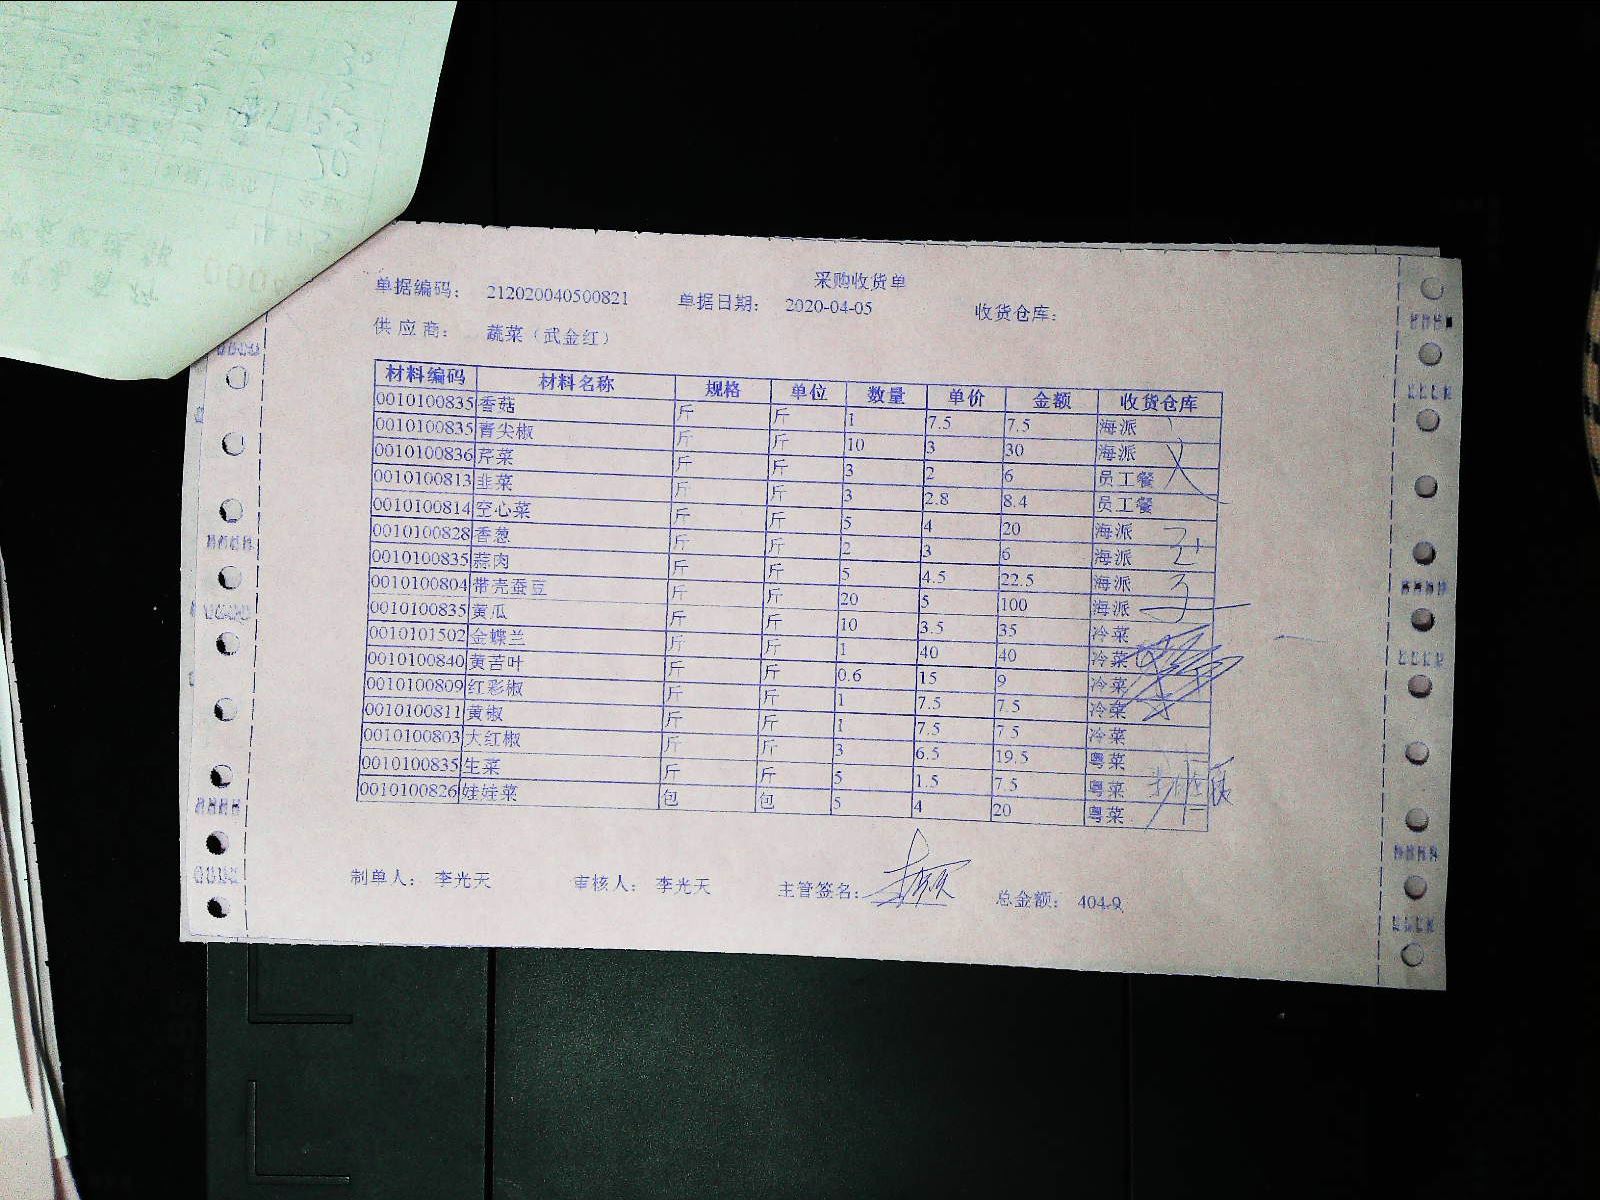 采购收货单
单据编码： 212020040500821 单据日期： 2020-04-05 收货仓库：
供应商： 蔬菜（武金红）
材料编码 材料名称 规格 单位 数量 单价 金额 收货仓库
0010100835 香菇 斤 斤 1 7.5 7.5 海派
0010100835 青尖椒 斤 斤 10 3 30 海派
0010100836 芹菜 斤 斤 3 2 6 员工餐
0010100813 韭菜 斤 斤 3 2.8 8.4 员工餐
0010100814 空心菜 斤 斤 5 4 20 海派
0010100828 香葱 斤 斤 2 3 6 海派
0010100835 蒜肉 斤 斤 5 4.5 22.5 海派
0010100804 带壳蚕豆 斤 斤 20 5 100 海派
0010100835 黄瓜 斤 斤 10 3.5 35 冷菜
0010101502 金蝶兰 斤 斤 1 40 40 冷菜
0010100840 黄苦叶 斤 斤 0.6 15 9 冷菜
0010100809 红彩椒 斤 斤 1 7.5 7.5 冷菜
0010100811 黄椒 斤 斤 1 7.5 7.5 冷菜
0010100803 大红椒 斤 斤 3 6.5 19.5 粤菜
0010100835 生菜 斤 斤 5 1.5 7.5 粤菜
0010100826 娃娃菜 包 包 5 4 20 粤菜
制单人： 李光天 审核人： 李光天 主管签名： 总金额： 404.9